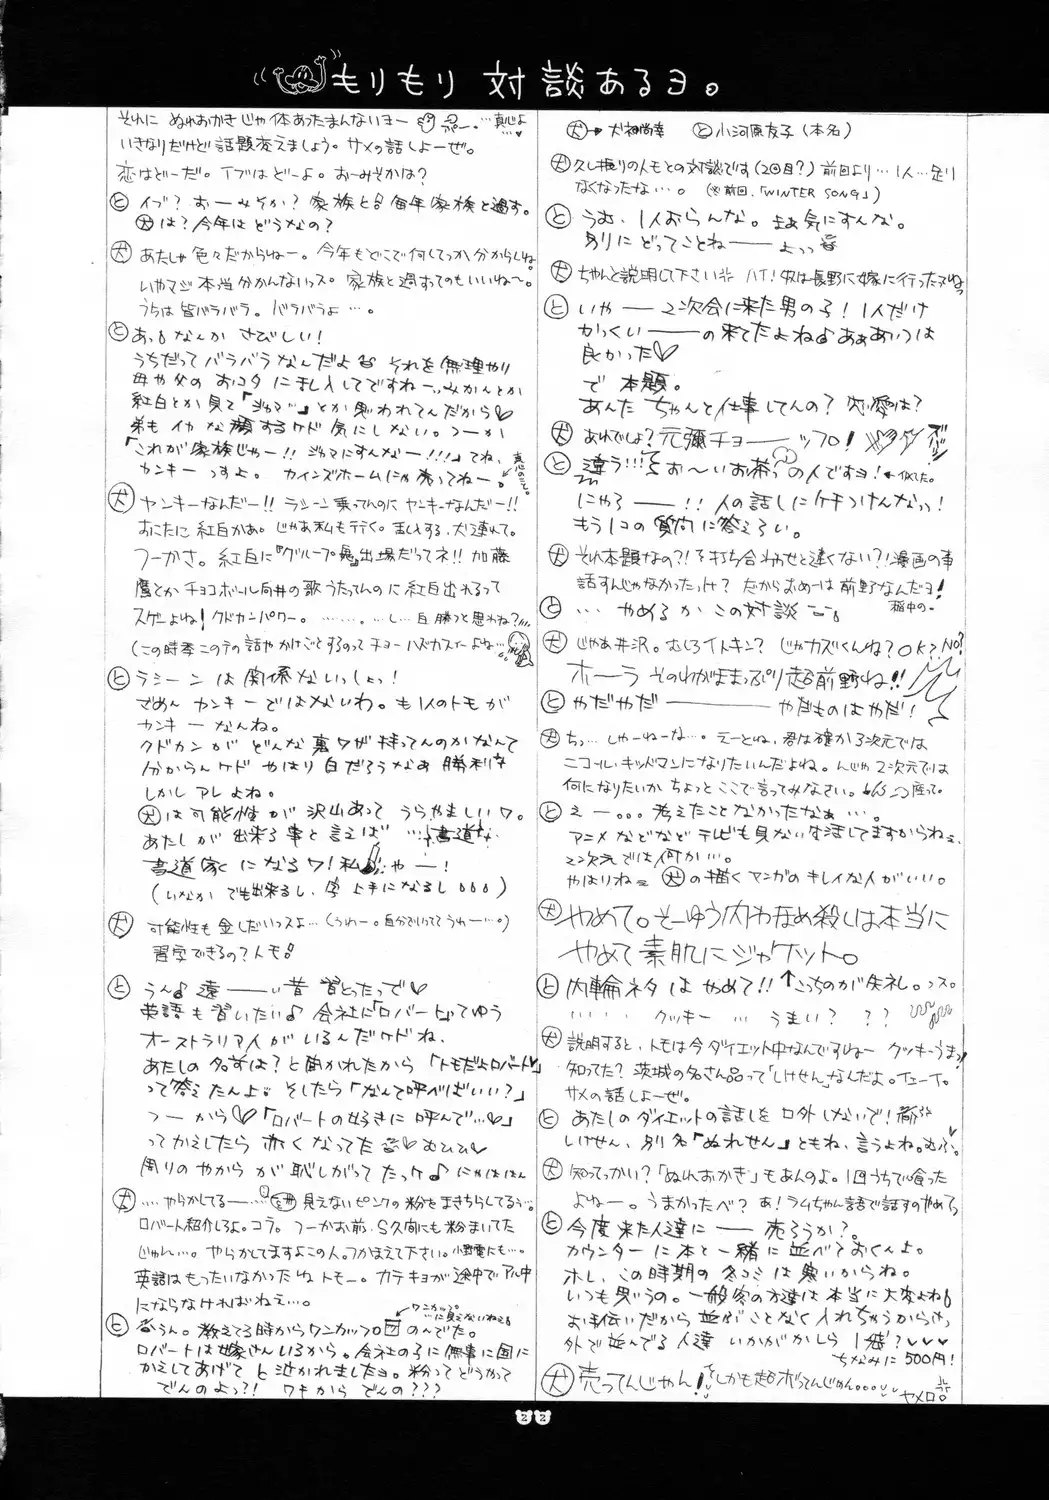 もりもり 対談あるヨ。
犬→犬神尚幸 と小河原友子(本名)
犬 久し振りのトモとの対談です(2回目?)前回より…1人…足り
なくなったな…。(※前回、「WINTER SONG」)
と うむ、1人おらんな。まぁ気にすんな。
別にどってことねー よっっ
犬 ちゃんと説明して下さい ハイ!奴は長野に嫁に行ったヌねっ
と いやー 2次会に来た男の子!1人だけ
かっくいーの来てたよね♪あぁあいつは
良かった♡
で 本題。
あんた ちゃんと仕事してんの?恋愛は?
犬 あれでしょ?元彌チョーッップ!
と 違う!!! お〜いお茶の人ですヨ!←似てた。
にゃろー!!人の話しにケチつけんなっ!
もう1コの質問に答えろい。
犬 それ本題なの?!打ち合わせと違くない?!漫画の事
話すんじゃなかったっけ?だからおめーは前野なんだヨ!
稲中の。
と … やめるか この対談
犬 じゃあ井沢。むしろイトキン?じゃカズくんね?OK?NO?
ホーラ そのわがままっぷり超前野ね!!
と やだやだー やだものはやだ!
犬 ちっ…しゃーねーな…。えーとね、君は確か3次元では
ニコール・キッドマンになりたいんだよね。んじゃ2次元では
何になりたいか ちょっとここで言ってみなさい。座って。
と えー… 考えたことなかったなぁ…。
アニメなどなどテレビも見ない生活してますからねぇ、
2次元では何か…。
やはりね 犬の描くマンガのキレイな人がいい。
犬 やめて。そーゆう内わなめ殺しは本当に
やめて素肌にジャケット。
と 内輪ネタはやめて!!↑こっちのが失礼。っス。
…… クッキー … うまい? ??
犬 説明すると、トモは今ダイエット中なんですねー クッキーうまっ!
知ってた?茨城の名さん品って「しけせん」なんだよ。イェーイ。
サメの話しよーぜ。
と あたしのダイエットの話しを口外しないで!
しけせん、別名「ぬれせん」ともね、言うよね。むふ。
犬 知ってっかい?「ぬれおかき」もあんのよ。1回うちで食った
よねー。うまかったべ?あ!ラムちゃん語で話すのやめてっ
と 今度来た人達にー売ろうか?
カウンターに本と一緒に並べておくんよ。
ホレ、この時期の冬コミは寒いからね。
いつも思うの。一般客の方達は本当に大変よね
お手伝いだから並ぶことなく入れちゃうからさ、
外で並んでる人達 いかがかしら 1袋?♡♡♡
ちなみに500円!
犬 売ってんじゃん!しかも超ボってんじゃん…。
ヤメロ。
それに ぬれおかきじゃ体あったまんないヨー 真心よ
いきなりだけど話題変えましょう。サメの話しよーぜ。
恋はどーだ。イブはどーよ。おーみそかは?
と イブ?おーみそか?家族と 毎年家族と過す。
犬は?今年はどうなの?
犬 あたしゃ色々だからねー。今年もどこで何してっか分からしね
いやマジ本当分かんないっス。家族と過すってのもいいねー。
うちは皆バラバラ。バラバラよ…。
と あっ なんか さびしい!
うちだってバラバラなんだよ それを無理やり
母や父のおコタにまし入してですねー、みかんとか
紅白とか見て「ジャマ」とか思われてんだから♡
弟もイヤな顔するケド気にしない。つーか
「これが家族じゃー!!ジャマにすんなー!!!」てね、
カンキーっすよ。カインズホームにゃ売ってねー。
真心のこと。
犬 ヤンキーなんだー!!ラシーン乗ってんのにヤンキーなんだー!!
おこたに紅白かぁ。じゃあ私も行く。まんする、犬連れて。
つーかさ。紅白に『グループ魂』出場だってネ!!加藤
鷹とかチョコボール向井の歌うたってんのに紅白出れるって
スゲーよね!クドカンパワー。……。…し…白勝つと思わね?
(この時季このテの話やかけごとするのってチョーハズカスィーよね…
と ラシーンは関係ないっしょっ!
でめんカンキーではないわ。も1人のトモが
カンキーなんね。
クドカンがどんな裏ワザ持ってんのかなんて
分からんケド やはり白だろうなぁ勝利は
しかしアレよね。
犬は可能性が沢山あってうらやましいワ。
あたしが出来る事と言えば …書道な
書道家になるワ!私じゃー!
(いなかでも出来るし、字上手になるし)
犬 可能性も金しだいっスよ…(うわー。自分でいっててうわー…。)
習字できるの?トモ。
と うん♪遠ーい昔 習とったで♡
英語も習いたい♪会社に「ロバート」てゆう
オーストラリア人がいるんだケドね、
あたしの名前は?と聞かれたから「トモだよロバート♡」
って答えたんよ。そしたら「なんて呼べばいい?」
つーから♡「ロバートの好きに呼んで…♡」
ってかえしたら赤くなってた♡むひひ♡
周りのやからが恥しがってたっけ♪にゃははん
犬 …やらかしてるー… 見えないピンクの粉をまきちらしてるぅ…
ロバート紹介しろよ。コラ。つーかお前、S久間にも粉まいてた
じゃん…。やらかしてますよこの人。つかまえて下さい。小野電にも…。
英語はもったいなかったねトモー。カテキョが途中でアル中
にならなければねえ…。
←ワンカップ。
と うん。教えてる時からワンカップのんでた。
ロバートは嫁さんいるから。会社の子に無事に国に
かえしてあげてと泣かれましたヨ。粉ってどうかって
でんのよっ?!ワキからでんの???
22